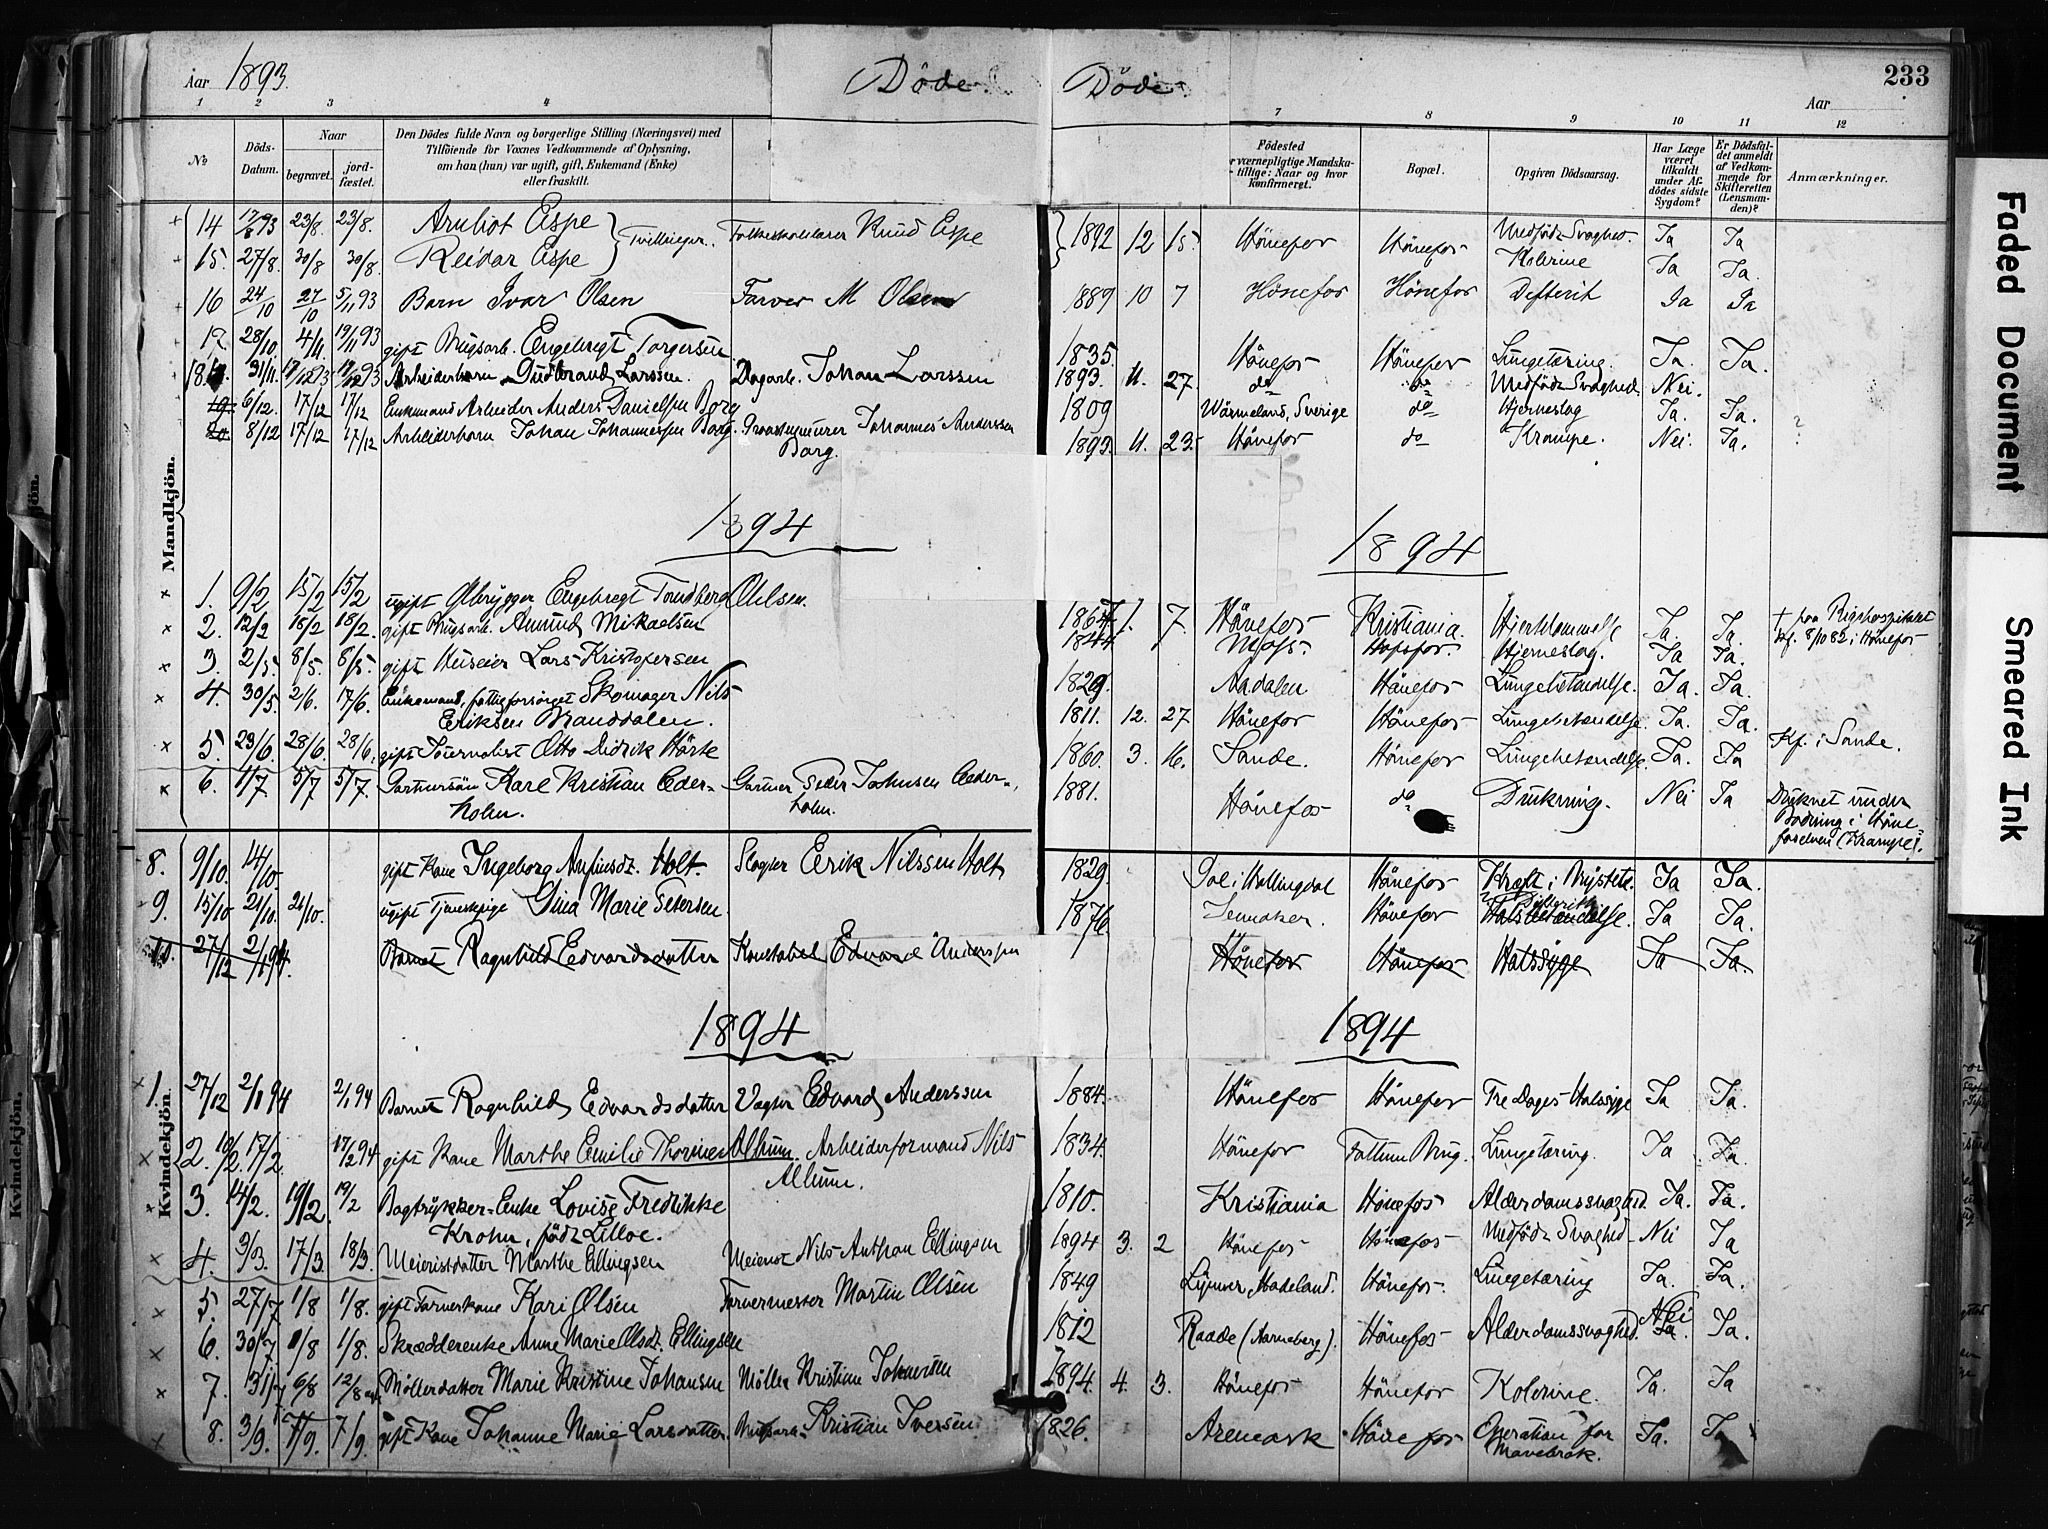 Aar 1893. Døde. Døde Aar 233
1 2 3 4 7 8 9 10 11 12
No Döds-Datum. Naar begravet. jord-fæstet.
Den Dödes fulde Navn og borgerlige Stilling (Næringsvei) med
Tilföiende for Voxnes Vedkommende af Oplysning,
om han (hun) var ugift, gift, Enkemand (Enke)
eller fraskilt.
Födested
værnepligtige Mandska-
tillige: Naar og hvor
konfirmeret.
Bopæl.
Opgiven Dödsaarsag.
Har Læge
været
tilkaldt
under Af-
dödes sidste
Sygdom?
Er Dödsfal-
det anmeldt
af Vedkom-
mende for
Skifteretten
(Lensman-
den)?
Anmærkninger.
Mandkjön.
14 17/8 93 23/8. 23/8. Arnliot Espe } Tvillinger. Folkeskolelærer Knud Espe } 1892 12 15. Hönefos Hönefos Medfödt Svaghed. Ja Ja
15. 27/8. 30/8 30/8. Reidar Espe Kolerine Ja Ja.
16 24/10 27/10 5/11 93 Barn Ivar Olsen Farver M Olsen 1889 10 7 Hönefos Hönefos Difterit Ja Ja
17 28/10 4/11. 19/11 93 gift Brugsarb. Engebregt Torgersen 1835. Hönefos Hönefos Lungetæring. Ja. Ja.
18 31/11. 17/12 93 17/12 93 Arbeiderbarn Gudbrand Larssen. Dagarb. Johan Larssen 1893. 11. 27. do do Medfödt Svaghed Nei.
19. 6/12. 17/12 17/12 Enkemand Arbeider Anders Danielsen Borg 1809 Wärmeland, Sverige do Hjerneslag Ja. Ja. ?
20 8/12 17/12 17/12 Arbeiderbarn Johan Johannessen Borg. Graastensmurer Johannes Anderssen
Borg. 1893. 11. 23. Hönefos do Krampe. Nei. Ja.
1894 1894
1. 9/2 15/2 15/2 ugift Ølbrygger Engebregt Trudberg Ohlsen. 1864. 1. 7. Hönefos Kristiania. Hjerklammelse Ja. Ja. † paa Rigshospitalet
Kf. 8/10 82 i Hönefos
2. 12/2 18/2 18/2. gift Brugsarb. Amund Mikaelsen 1844 Moss. Hofsfos. Hjerneslag. Ja Ja.
3. 2/5. 8/5. 8/5. gift Huseier Lars Kristofersen 1829. Aadalen Hönefos Lungebetændelse. Ja. Ja.
4. 30/5. 2/6. 17/6. Enkemand, fattigforsörget Skomager Nils
Eriksen Branddalen. 1811. 12. 27. Hönefos Hönefos Lungebetændelse Ja. Ja.
5. 23/6. 28/6. 28/6. gift Journalist Otto Didrik Hörte 1860. 3. 16. Sande. Hönefos Lungebetændelse Ja. Ja Kf. i Sande.
6. 1/7. 5/7 5/7. Gartnersön Karl Kristian Ceder-
holm. Gartner Peder Johnsen Ceder-
holm. 1881. Hönefos do Drukning. Nei Ja Druknet under
Badning i Höne-
foselven (Krampe).
Kvindekjön.
8. 9/10. 14/10. gift Kone Ingeborg Arfinsdt. Holt. Slagter Eerik Nilssen Holt 1829. Gol i Hallingdal Hönefos Kræft i Brystet. Ja Ja.
9. 15/10 21/10. 21/10. ugift Tjenestepige Gina Marie Petersen. 1876. Jevnaker. Hönefos Difterith Halsbetændelse. Ja Ja.
10. 27/12 2/1 94. Barnet Ragnhild Edvardsdatter Konstabel Edvard Anderssen Hönefos Hönefos Halssyge Ja Ja.
1894 1894
1. 27/12 2/1 94 2/1 94 Barnet Ragnhild Edvardsdatter Vægter Edvard Anderssen 1884. Hönefos Hönefos Tre Dages Halssyge Ja Ja.
2. 10/2. 17/2. 17/2 94 gift Kone Marthe Emilie Thorine Album. Arbeiderformand Nils
Album. 1834. Hönefos Follum Brug. Lungetæring. Ja Ja.
3. 14/2. 19/2. 19/2 Bogtrykker-Enke Lovise Fredrikke
Krohn, född Lilloe. 1810. Kristiania Hönefos Alderdomssvaghed. Ja. Ja.
4. 3/3. 17/3. 18/3. Meieristdatter Marthe Ellingsen Meierist Nils Anthon Ellingsen 1894 3. 2 Hönefos Hönefos Medfödt Svaghed Nei Ja
5. 27/7 1/8 1/8. gift Farverkone Kari Olsen Farvermester Martin Olsen 1849 Lunner, Hadeland. Hönefos. Lungetæring Ja. Ja.
6. 30/7. 1/8 1/8. Skrædderenke Anne Marie Olsdt. Ellingsen 1812 Raade (Aarneberg). Hönefos Alderdomssvaghed. Nei Ja. Ja.
7. 31/7 6/8 12/8 Möllerdatter Marie Kristine Johansen Möller Kristian Johansen 1894. 4. 3. Hönefos Hönefos Kolerine. Ja. Ja
8. 3/9. 7/9. 7/9. gift Kone Johanne Marie Larsdatter. Brugsarb. Kristian Iversen. 1826. Aremark Hönefos Operation for
Mavebrok. Ja. Ja
Faded Document
Smeared Ink